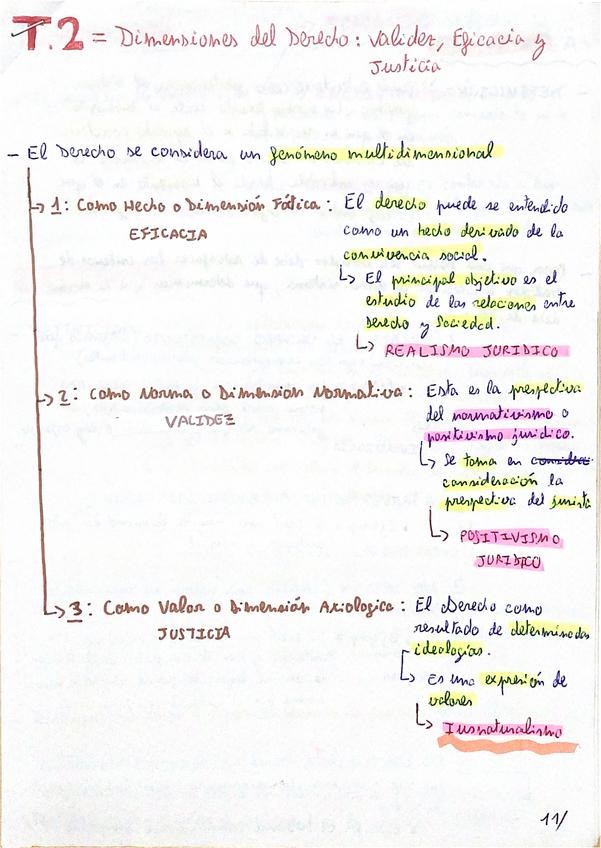 T.2 = Dimensiones del Derecho: Validez, Eficacia y
Justicia
- El Derecho se considera un fenómeno multidimensional
1: Como Hecho o Dimensión Fática: El derecho puede se entendido
EFICACIA como un hecho derivado de la
convivencia social.
El principal objetivo es el
estudio de las relaciones entre
Derecho y Sociedad.
REALISMO JURIDICO
2: Como Norma o Dimensión Normativa: Esta es la prespectiva
VALIDEZ del normativismo o
positivismo juridico.
Se toma en considra
consideración la
prespectiva del jurista
POSITIVISMO
JURÍDICO
3: Como Valor o Dimensión Axiologica: El Derecho como
JUSTICIA resultado de determinadas
ideologías.
Es una expresión de
valores
Iusnaturalismo
11/